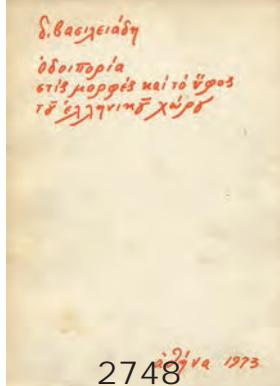 δ. βασιλειάδη
ὁδοιπορία
στὶς μορφὲς καὶ τὸ ὕφος
τȣ̃ ἑλληνικȣ̃ χώρȣ
ἀθήνα 1973
2748